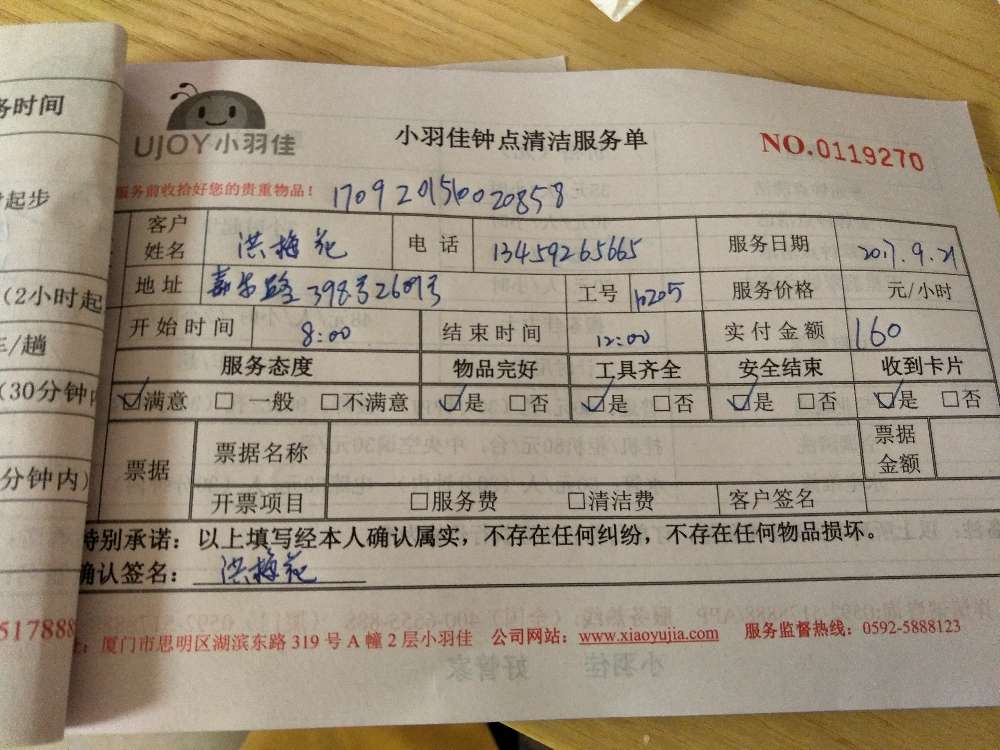 务时间
起步
（2小时起
/趟
（30分钟内
分钟内）
517888
UJOY小羽佳
小羽佳钟点清洁服务单
NO.0119270
服务前收拾好您的贵重物品！
170920151020858
客户姓名 洪梅苑 电话 13459265665 服务日期 2017.9.21
地址 嘉禾路398号2601号 工号 10205 服务价格 元/小时
开始时间 8:00 结束时间 12:00 实付金额 160
服务态度 物品完好 工具齐全 安全结束 收到卡片
☑满意 □一般 □不满意 ☑是 □否 ☑是 □否 ☑是 □否 ☑是 □否
票据 票据名称 票据金额
开票项目 □服务费 □清洁费 客户签名
特别承诺：以上填写经本人确认属实，不存在任何纠纷，不存在任何物品损坏。
确认签名：洪梅苑
：厦门市思明区湖滨东路319号A幢2层小羽佳 公司网站：www.xiaoyujia.com 服务监督热线：0592-5888123